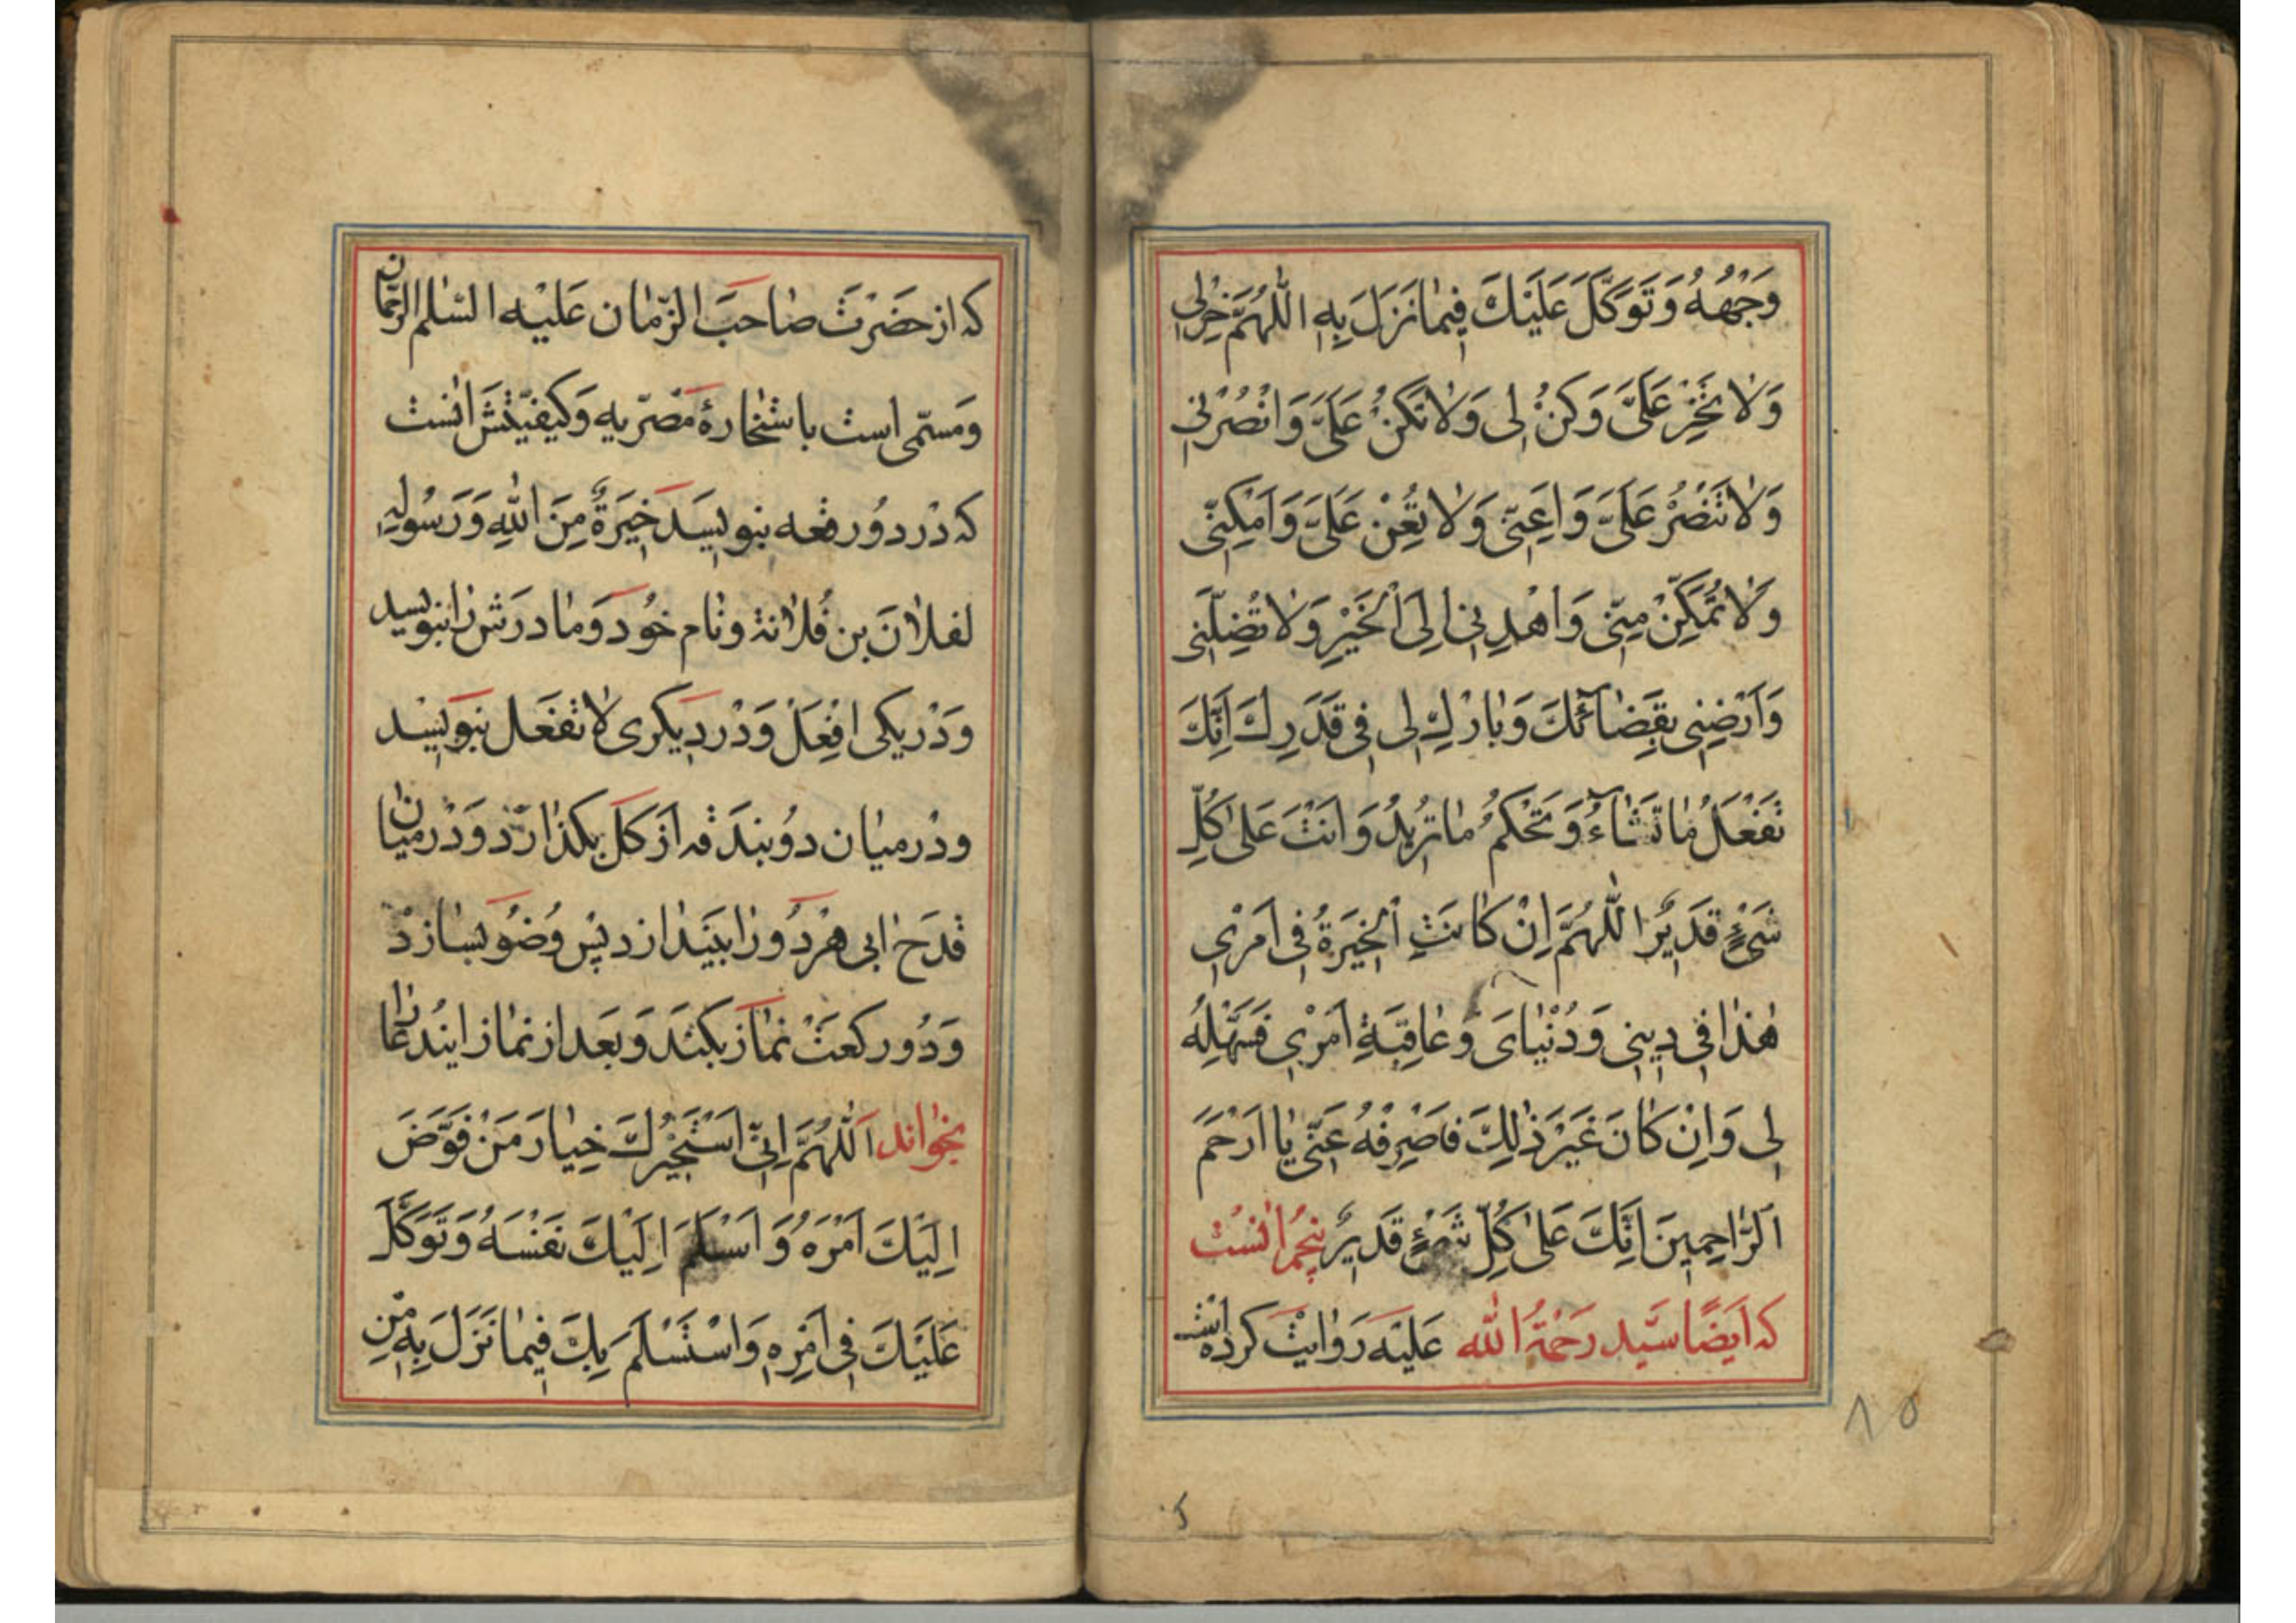 وَجْهَهُ وَتَوَكَّلَ عَلَيْكَ فِيمَا نَزَلَ بِهِ اَللّٰهُمَّ خِرْلِي
وَلَا تَخِرْ عَلَيَّ وَكُنْ لِي وَلَا تَكُنْ عَلَيَّ وَانْصُرْنِي
وَلَا تَنْصُرْ عَلَيَّ وَاَعِنِّي وَلَا تُعِنْ عَلَيَّ وَاَمْكِنِّي
وَلَا تُمَكِّنْ مِنِّي وَاهْدِنِي اِلَى الْخَيْرِ وَلَا تُضِلَّنِي
وَاَرْضِنِي بِقَضَائِكَ وَبَارِكْ لِي فِي قَدَرِكَ اِنَّكَ
تَفْعَلُ مَا تَشَاءُ وَتَحْكُمُ مَا تُرِيدُ وَاَنْتَ عَلٰى كُلِّ
شَيْءٍ قَدِيرٌ اَللّٰهُمَّ اِنْ كَانَتِ الْخِيَرَةُ فِي اَمْرِي
هٰذَا فِي دِينِي وَدُنْيَايَ وَعَاقِبَةِ اَمْرِي فَسَهِّلْهُ
لِي وَاِنْ كَانَ غَيْرَ ذٰلِكَ فَاصْرِفْهُ عَنِّي يَا اَرْحَمَ
اَلرَّاحِمِينَ اِنَّكَ عَلٰى كُلِّ شَيْءٍ قَدِيرٌ پنجم انست
كه اَيضًا سيّد رَحمَةُ اللّٰه عَلَيْه رَوايت كرده است
٨٥
كه از حضرت صاحب الزّمان عليه السّلم الرحمان
وَمسمّى است باستخارهٔ مصريه وَكيفيّتش انست
كه در دو رقعه بنويسد خِيَرَةٌ مِنَ اللّٰهِ وَرَسُولِهِ
لفلان بن فُلانة ونام خود وَمادرش را بنويسد
وَدر يكى افعل وَدر ديكرى لا تفعل بنويسد
ودر ميان دو بندقه از كل بكذارد وَدر ميان
قدح ابى هر دو را بيندازد پس وُضو بسازد
وَدو ركعت نماز بكند وَبعد از نماز ايندعا را
بخواند اَللّٰهُمَّ اِنِّي اَسْتَخِيرُكَ خِيَارَ مَنْ فَوَّضَ
اِلَيْكَ اَمْرَهُ وَاَسْلَمَ اِلَيْكَ نَفْسَهُ وَتَوَكَّلَ
عَلَيْكَ فِي اَمْرِهِ وَاسْتَسْلَمَ بِكَ فِيمَا نَزَلَ بِهِ مِنْ